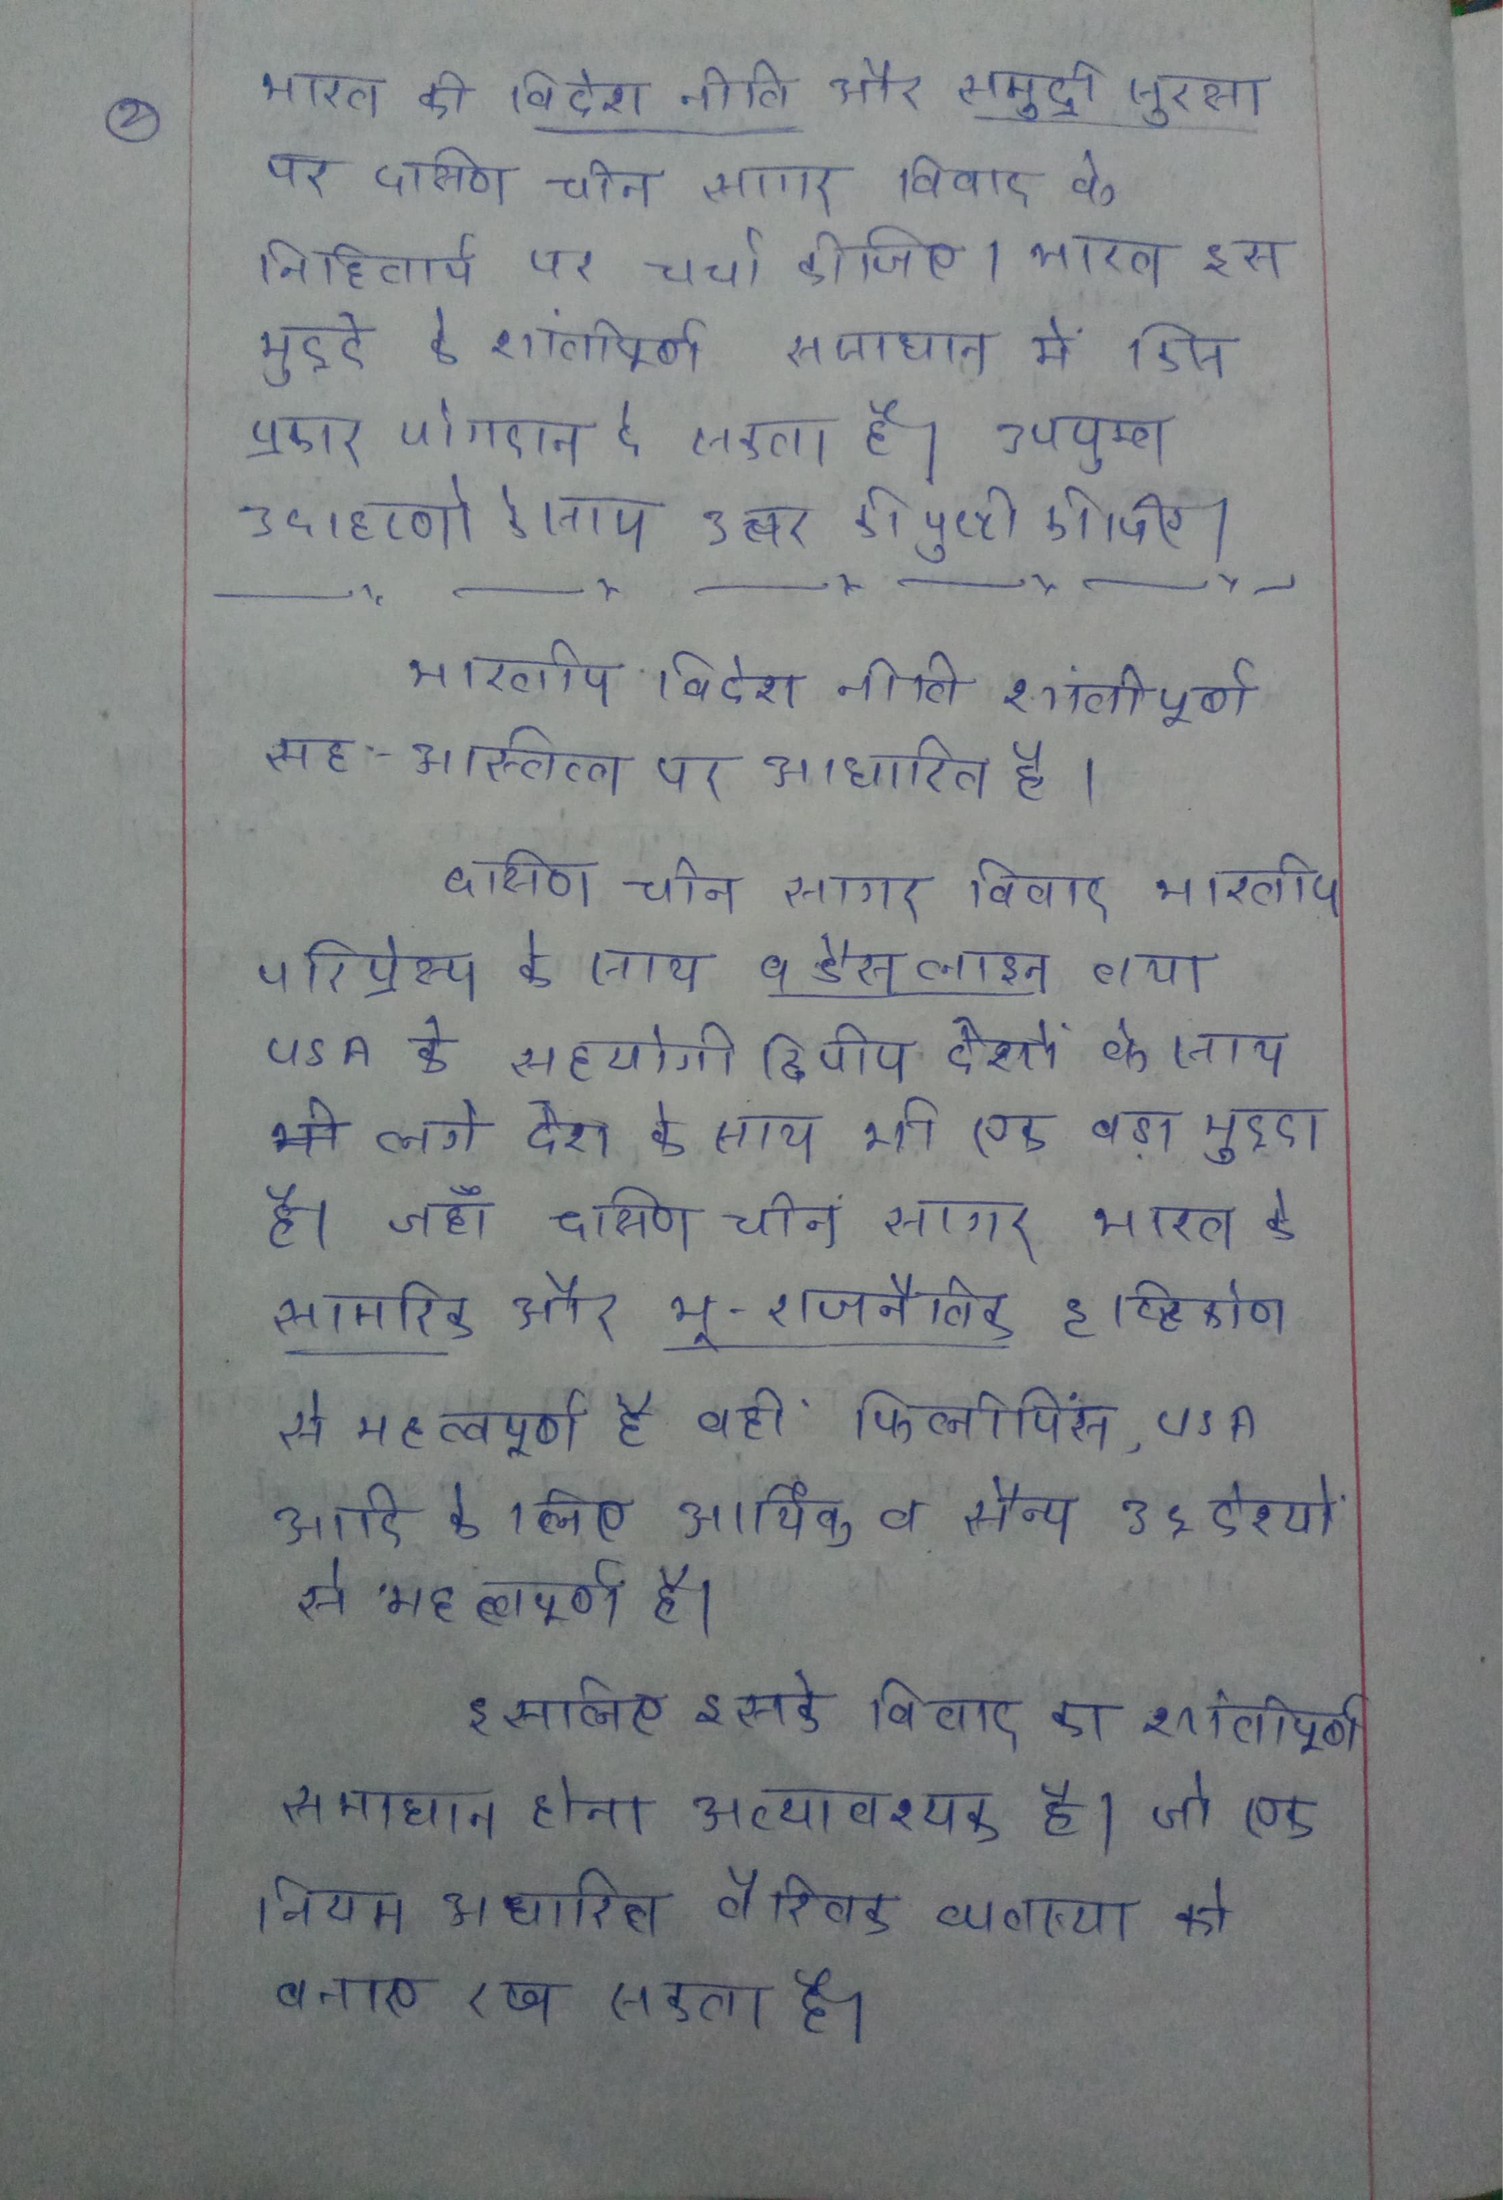 ②
भारत की विदेश नीति और समुद्री सुरक्षा
पर दक्षिण चीन सागर विवाद के
निहितार्थ पर चर्चा कीजिए। भारत इस
मुद्दे के शांतीपूर्ण समाधान में किस
प्रकार योगदान दे सकता है। उपयुक्त
उदाहरणो के साथ उत्तर की पुष्टी कीजिए।
भारतीय विदेश नीति शांतीपूर्ण
सह-अस्तित्व पर आधारित है।
दक्षिण चीन सागर विवाद भारतीय
परिप्रेक्ष्य के साथ ९ डैस लाइन तथा
USA के सहयोगी द्विपीय देशों के साथ
भी लगे देश के साथ भी एक बड़ा मुद्दा
है। जहाँ दक्षिण चीन सागर भारत के
सामरिक और भू-राजनैतिक दृष्टिकोण
से महत्वपूर्ण है वही फिलीपिंस, USA
आदि के लिए आर्थिक व सैन्य उद्देश्यों
से महत्वपूर्ण है।
इसलिए इसके विवाद का शांतीपूर्ण
समाधान होना अत्यावश्यक है। जो एक
नियम अधारित वैश्विक व्यवस्था को
बनाए रख सकता है।